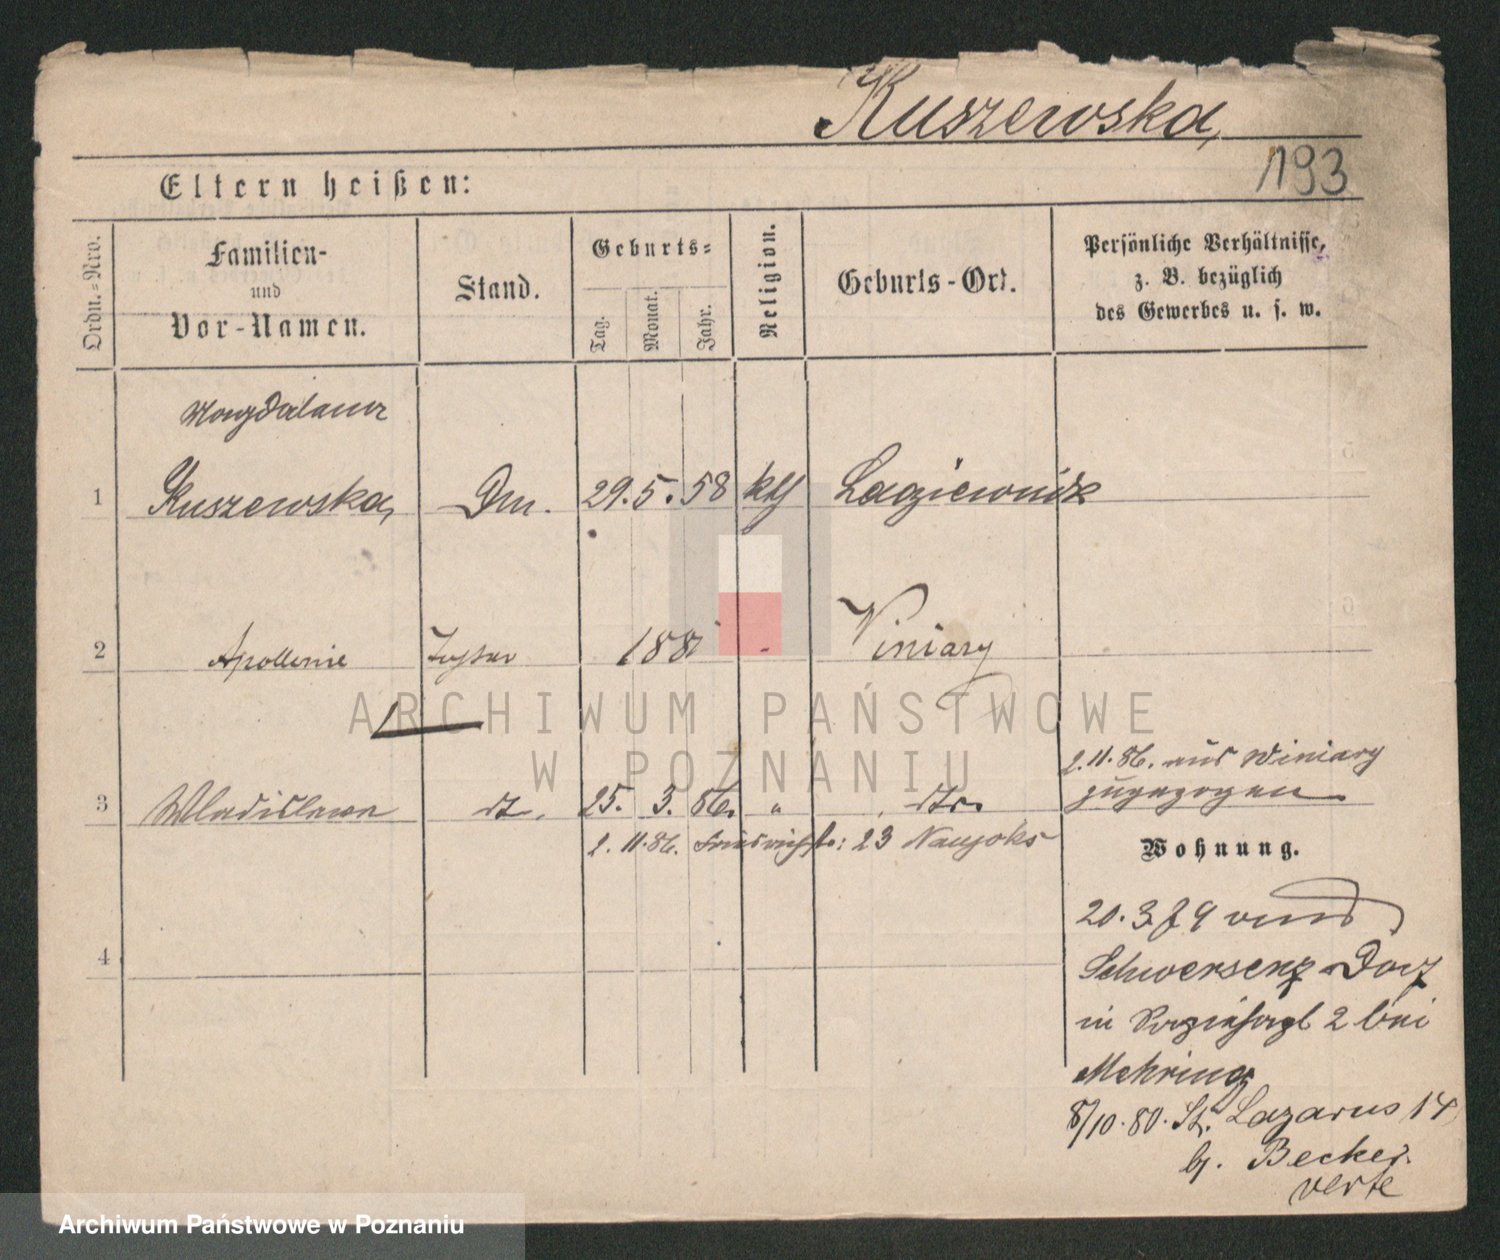 Kuszewska,
193
Eltern heißen:
Ordn.-Nro.
Familien-
und
Vor-Namen.
Stand.
Geburts-
Tag.
Monat.
Jahr.
Religion.
Geburts-Ort.
Persönliche Verhältnisse,
z. B. bezüglich
des Gewerbes u. s. w.
Magdalena
1 Kuszewska, 29. 5. 58 kth
2 Apollonia Tochter 188 Winiary
ARCHIWUM PAŃSTWOWE
W POZNANIU
2. 11. 86. aus Winiary
zugezogen
3 Wladislawa dt. 25. 3. 86. " dto.
2. 11. 86. Friedrichstr: 23 Naujoks
Wohnung.
20. 3. 79 von
4
Schwersenz Dorf
in 2 bei
Mehring
8/10. 80. St. Lazarus 14
b. Becker.
verte
Archiwum Państwowe w Poznaniu